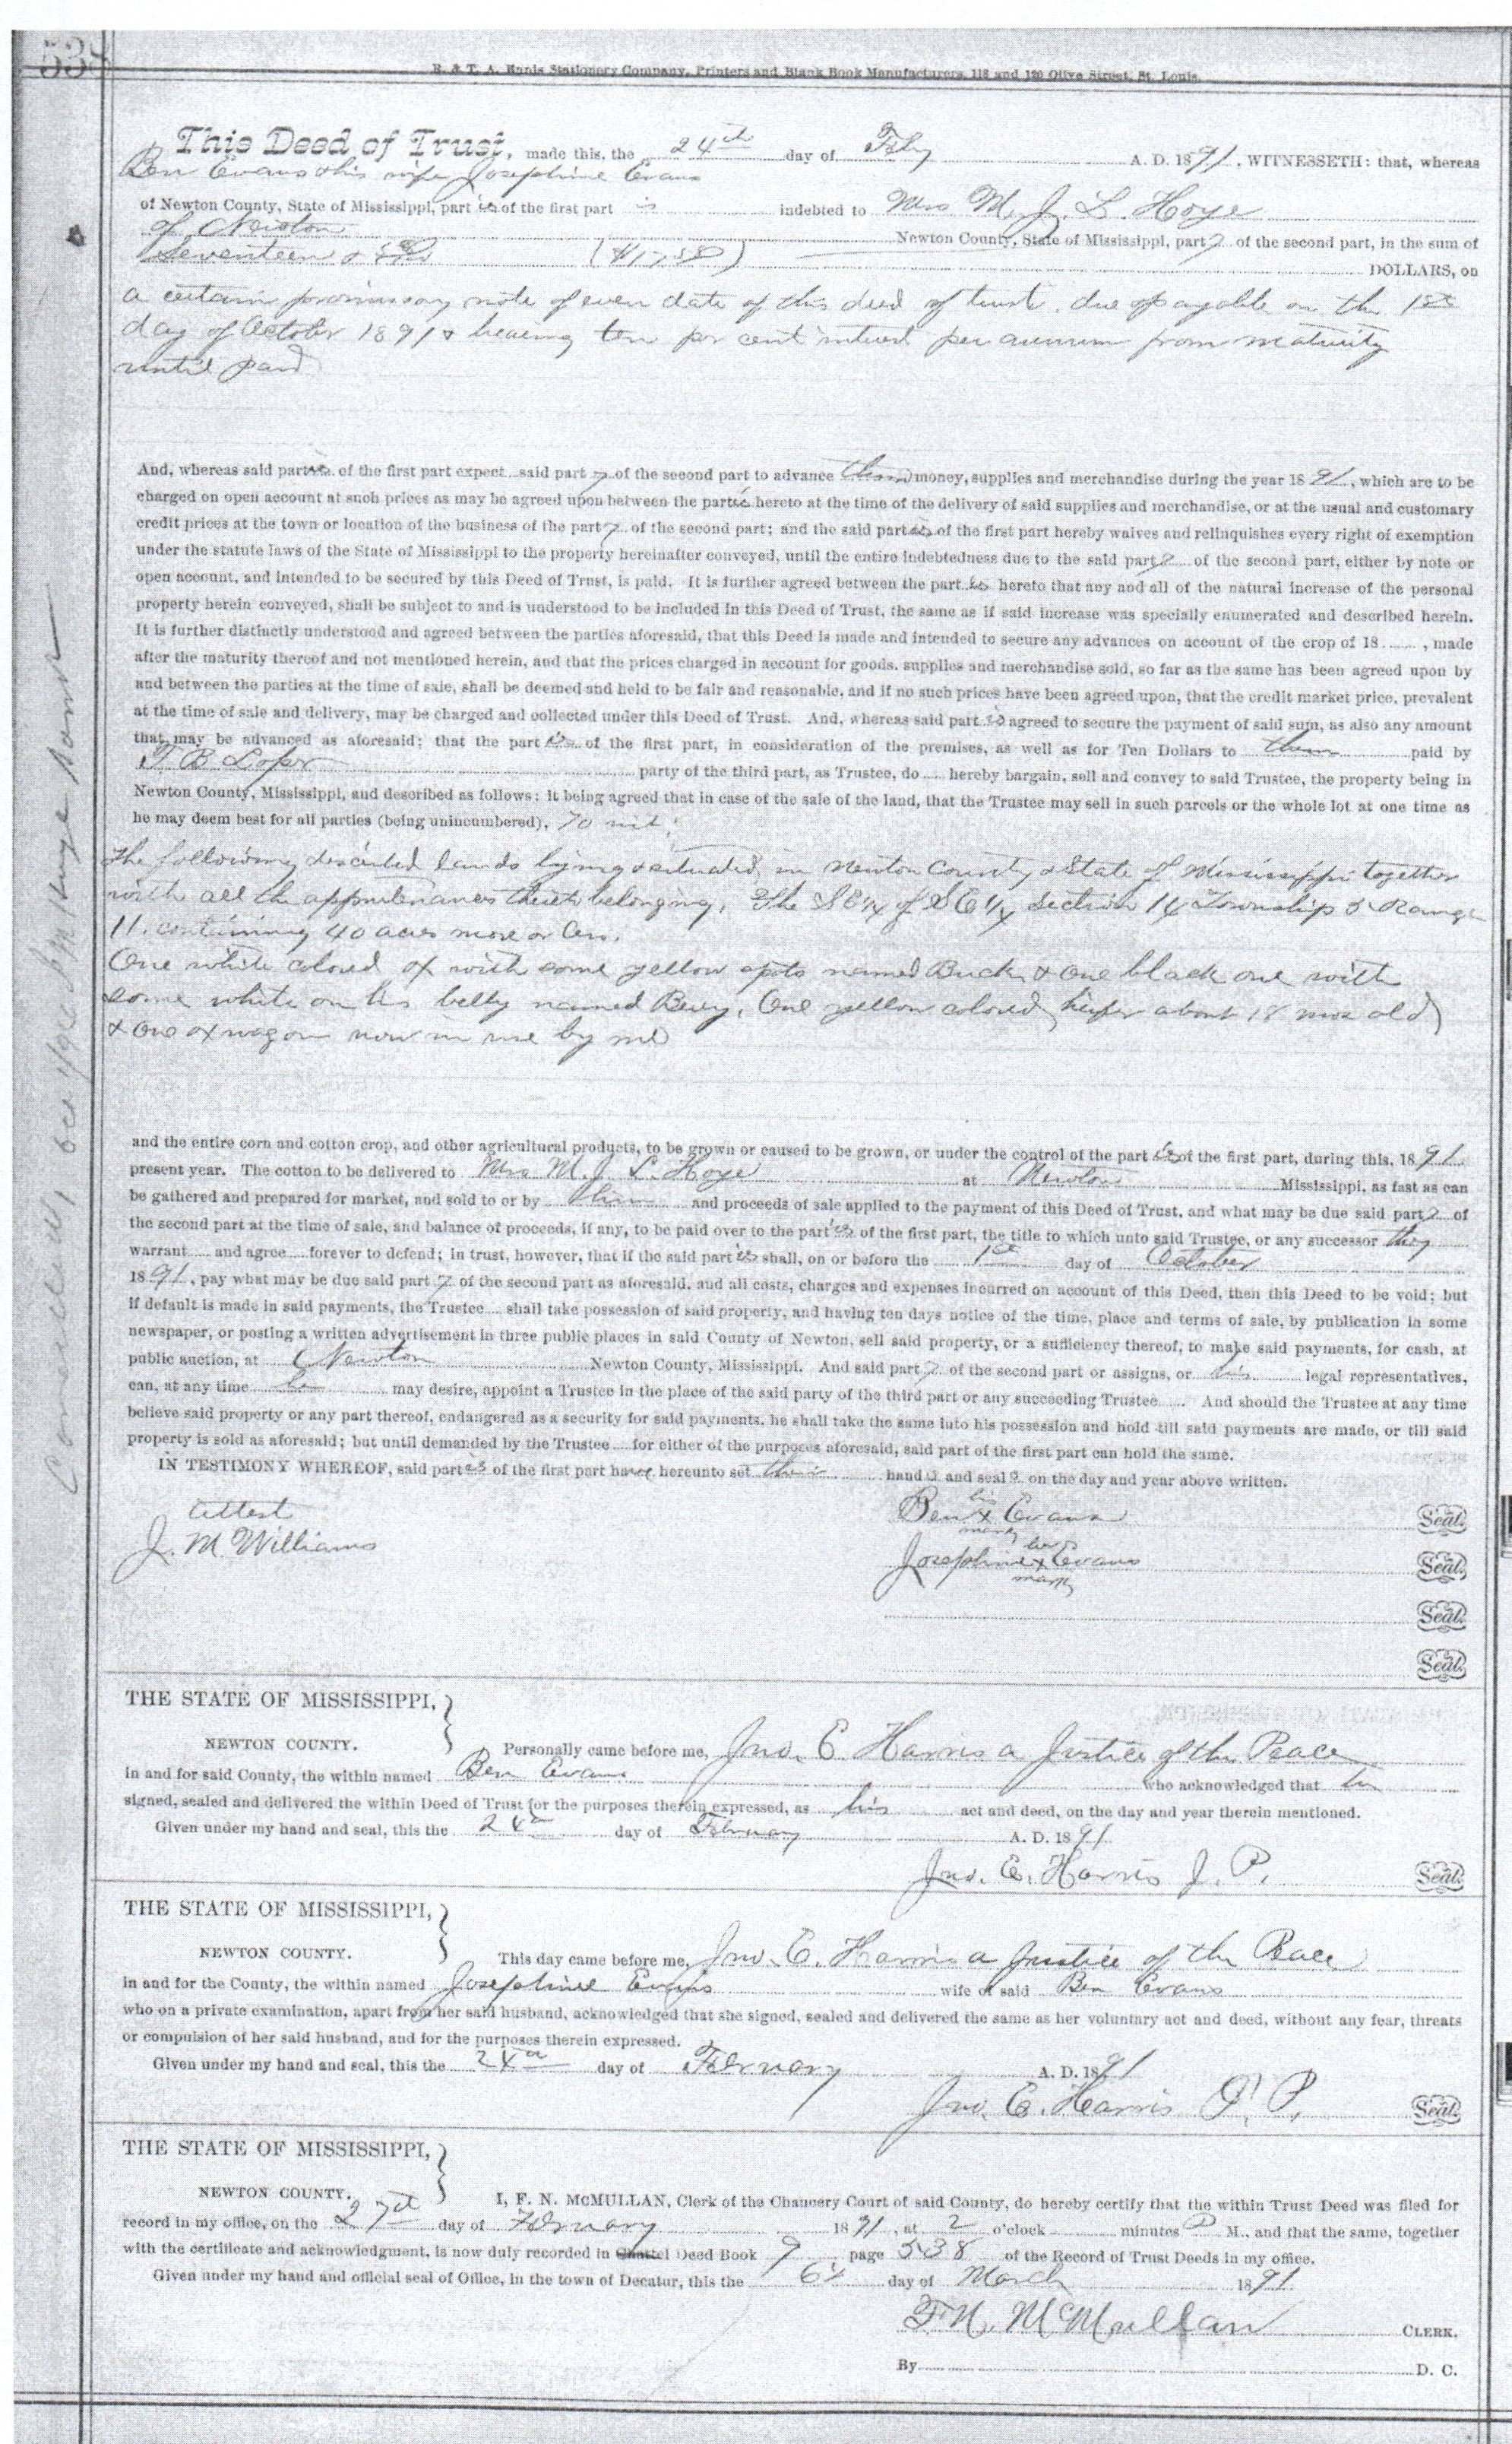 538
R. & T. A. Ennis Stationery Company, Printers and Blank Book Manufacturers, 118 and 120 Olive Street, St. Louis.
This Deed of Trust, made this, the 24th day of Feby A. D. 1891, WITNESSETH: that, whereas
Ben Evans & his wife Josephine Evans
of Newton County, State of Mississippi, part ies of the first part is indebted to Mrs M. J. L. Hoye
of Newton Newton County, State of Mississippi, party of the second part, in the sum of
Seventeen & DOLLARS, on
a certain promissory note of even date of this deed of trust. due & payable on the 1st
day of October 1891 & bearing ten per cent interest per annum from maturity
until paid
And, whereas said parties of the first part expect said party of the second part to advance them money, supplies and merchandise during the year 1891, which are to be
charged on open account at such prices as may be agreed upon between the parties hereto at the time of the delivery of said supplies and merchandise, or at the usual and customary
credit prices at the town or location of the business of the party of the second part; and the said parties of the first part hereby waives and relinquishes every right of exemption
under the statute laws of the State of Mississippi to the property hereinafter conveyed, until the entire indebtedness due to the said party of the second part, either by note or
open account, and intended to be secured by this Deed of Trust, is paid. It is further agreed between the part ies hereto that any and all of the natural increase of the personal
property herein conveyed, shall be subject to and is understood to be included in this Deed of Trust, the same as if said increase was specially enumerated and described herein.
It is further distinctly understood and agreed between the parties aforesaid, that this Deed is made and intended to secure any advances on account of the crop of 18 , made
after the maturity thereof and not mentioned herein, and that the prices charged in account for goods, supplies and merchandise sold, so far as the same has been agreed upon by
and between the parties at the time of sale, shall be deemed and held to be fair and reasonable, and if no such prices have been agreed upon, that the credit market price, prevalent
at the time of sale and delivery, may be charged and collected under this Deed of Trust. And, whereas said part ies agreed to secure the payment of said sum, as also any amount
that may be advanced as aforesaid; that the part ies of the first part, in consideration of the premises, as well as for Ten Dollars to them paid by
T B Loper party of the third part, as Trustee, do hereby bargain, sell and convey to said Trustee, the property being in
Newton County, Mississippi, and described as follows: it being agreed that in case of the sale of the land, that the Trustee may sell in such parcels or the whole lot at one time as
he may deem best for all parties (being unincumbered), To wit:
The following described lands lying & situated in Newton County & State of Mississippi together
with all the appurtenances thereto belonging, The SE 1/4 of SE 1/4 Section 14 Township 5 Range
11. containing 40 acres more or less.
One white colored ox with some yellow spots named Buck & one black one with
some white on his belly named Berry, One yellow colored heifer about 18 mos old
& one ox wagon now in use by me
and the entire corn and cotton crop, and other agricultural products, to be grown or caused to be grown, or under the control of the part ies of the first part, during this, 1891
present year. The cotton to be delivered to Mrs M. J. L. Hoye at Newton Mississippi, as fast as can
be gathered and prepared for market, and sold to or by and proceeds of sale applied to the payment of this Deed of Trust, and what may be due said party of
the second part at the time of sale, and balance of proceeds, if any, to be paid over to the part ies of the first part, the title to which unto said Trustee, or any successor they
warrant and agree forever to defend; in trust, however, that if the said part ies shall, on or before the 1st day of October
1891, pay what may be due said party of the second part as aforesaid, and all costs, charges and expenses incurred on account of this Deed, then this Deed to be void; but
if default is made in said payments, the Trustee shall take possession of said property, and having ten days notice of the time, place and terms of sale, by publication in some
newspaper, or posting a written advertisement in three public places in said County of Newton, sell said property, or a sufficiency thereof, to make said payments, for cash, at
public auction, at Newton Newton County, Mississippi. And said party of the second part or assigns, or his legal representatives,
can, at any time he may desire, appoint a Trustee in the place of the said party of the third part or any succeeding Trustee. And should the Trustee at any time
believe said property or any part thereof, endangered as a security for said payments, he shall take the same into his possession and hold till said payments are made, or till said
property is sold as aforesaid; but until demanded by the Trustee for either of the purposes aforesaid, said part of the first part can hold the same.
IN TESTIMONY WHEREOF, said parties of the first part have hereunto set their hands and seals on the day and year above written.
Attest
J. M. Williams
Ben his x mark Evans Seal.
Josephine her x mark Evans Seal.
Seal.
Seal.
THE STATE OF MISSISSIPPI,
NEWTON COUNTY. Personally came before me, Jno. E. Harris a Justice of the Peace
in and for said County, the within named Ben Evans who acknowledged that he
signed, sealed and delivered the within Deed of Trust for the purposes therein expressed, as his act and deed, on the day and year therein mentioned.
Given under my hand and seal, this the 24th day of February A. D. 1891
Jno. E. Harris J. P. Seal.
THE STATE OF MISSISSIPPI,
NEWTON COUNTY. This day came before me, Jno. E. Harris a Justice of the Peace
in and for the County, the within named Josephine Evans wife of said Ben Evans
who on a private examination, apart from her said husband, acknowledged that she signed, sealed and delivered the same as her voluntary act and deed, without any fear, threats
or compulsion of her said husband, and for the purposes therein expressed.
Given under my hand and seal, this the 24th day of February A. D. 1891
Jno. E. Harris J. P. Seal.
THE STATE OF MISSISSIPPI,
NEWTON COUNTY. I, F. N. McMULLAN, Clerk of the Chancery Court of said County, do hereby certify that the within Trust Deed was filed for
record in my office, on the 27th day of February 1891, at 2 o'clock minutes P M., and that the same, together
with the certificate and acknowledgment, is now duly recorded in Chattel Deed Book 9 page 538 of the Record of Trust Deeds in my office.
Given under my hand and official seal of Office, in the town of Decatur, this the 6th day of March 1891
F. N. McMullan CLERK.
By D. C.